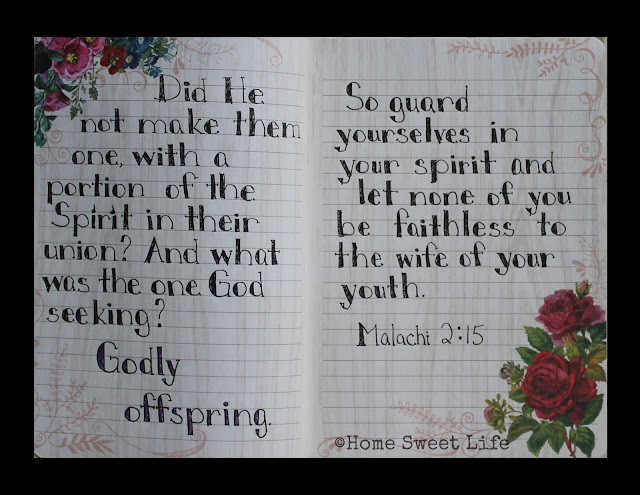 Did He
not make them
one, with a
portion of the
Spirit in their
union? And what
was the one God
seeking?
Godly
offspring.
So guard
yourselves in
your spirit and
let none of you
be faithless to
the wife of your
youth.
Malachi 2:15
©Home Sweet Life